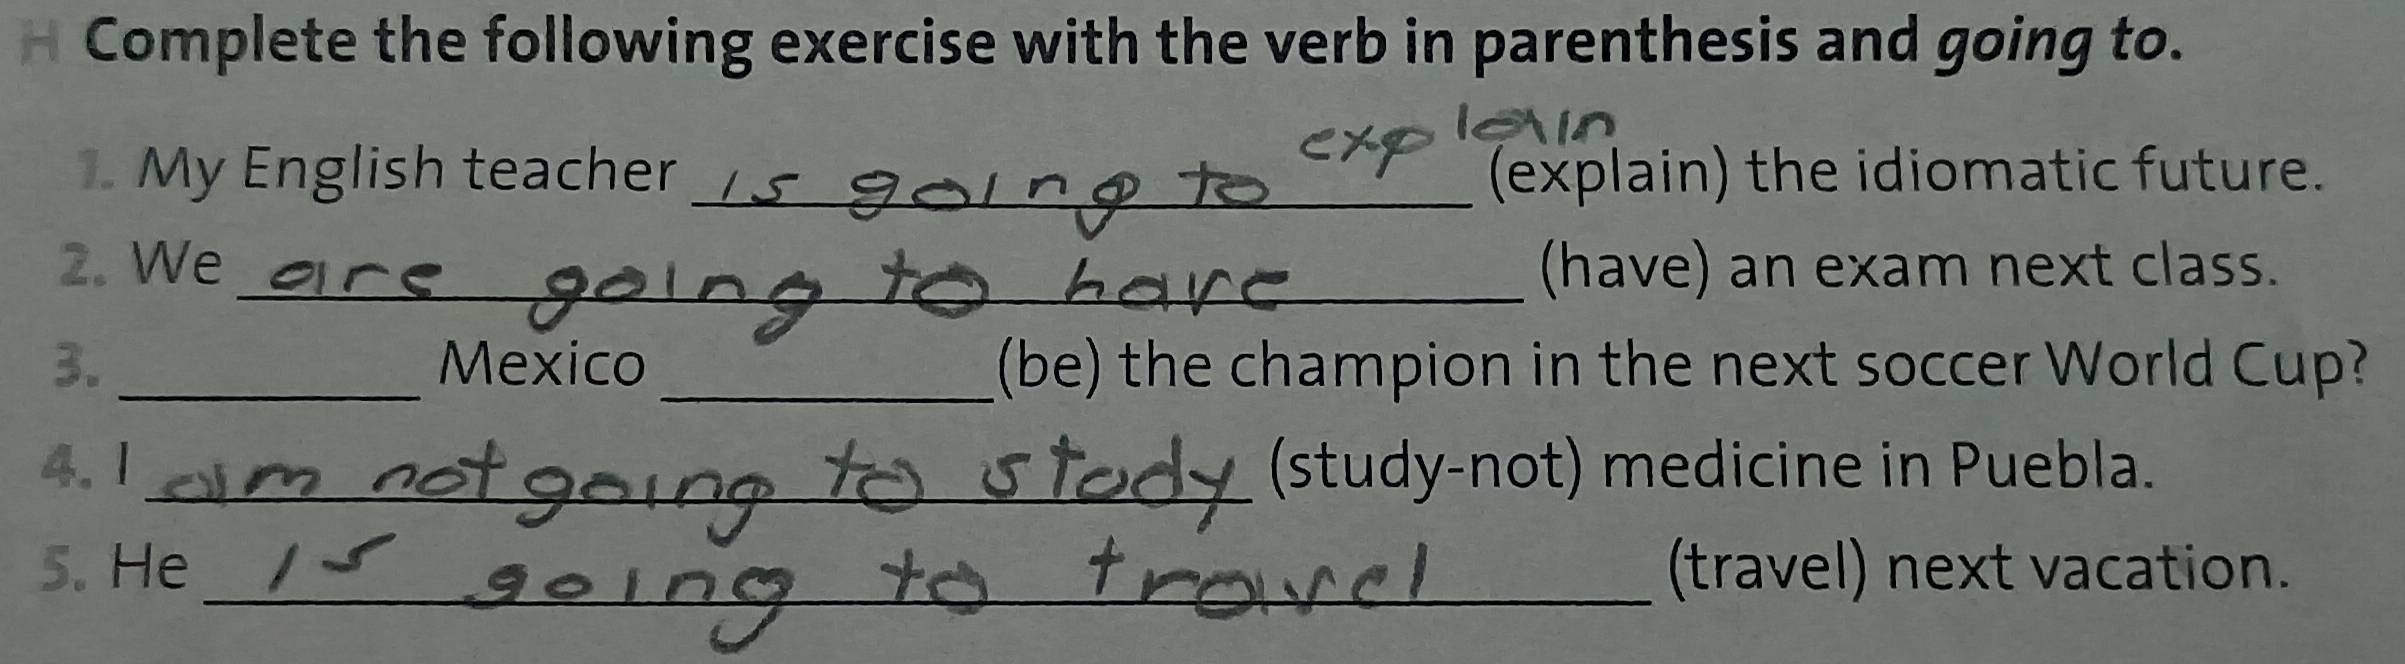 H Complete the following exercise with the verb in parenthesis and going to.
1. My English teacher is going to explain (explain) the idiomatic future.
2. We are going to have (have) an exam next class.
3. __________ Mexico __________ (be) the champion in the next soccer World Cup?
4. I am not going to study (study-not) medicine in Puebla.
5. He is going to travel (travel) next vacation.